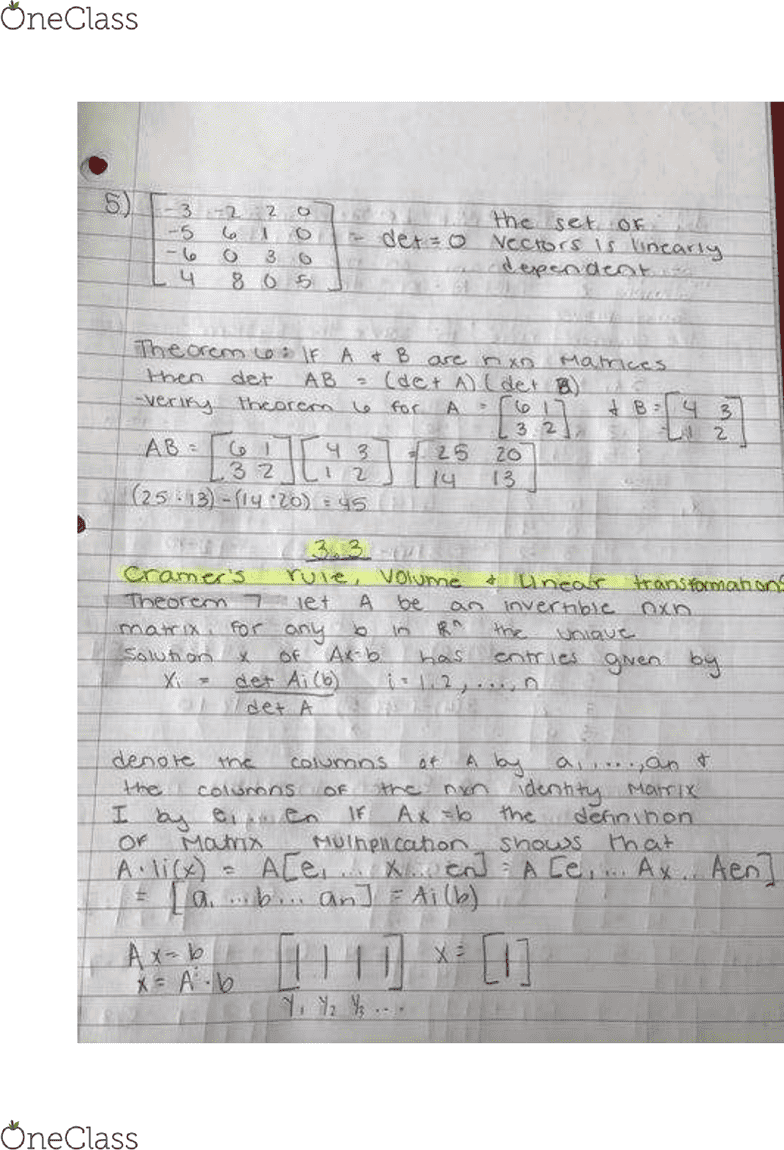 OneClass
5) [-3 -2 2 0
-5 6 1 0 = det = 0 the set of vectors is linearly
-6 0 3 0 dependent
4 8 0 5]
Theorem 6: If A & B are nxn Matrices
then det AB = (det A)(det B)
-verify theorem 6 for A = [6 1 & B = [4 3
3 2] 1 2]
AB = [6 1 [4 3 = [25 20
3 2] 1 2] 14 13]
(25·13)-(14·20) = 45
3.3
Cramer's rule, Volume & Linear transformations
Theorem 7 let A be an invertible nxn
matrix. For any b in ℝⁿ the unique
Solution x of Ax=b has entries given by
xi = det Ai(b) i=1,2,...,n
det A
denote the columns of A by a1,...,an &
the columns of the nxn identity Matrix
I by e1...en If Ax=b the definition
Of Matrix Multiplication shows that
A·Ii(x) = A[e1 ... x ... en] = A[e1 ... Ax ... Aen]
= [a1 ...b... an] = Ai(b)
Ax=b [| | | |] x = [|]
x = A·b
y1 y2 y3 ...
OneClass